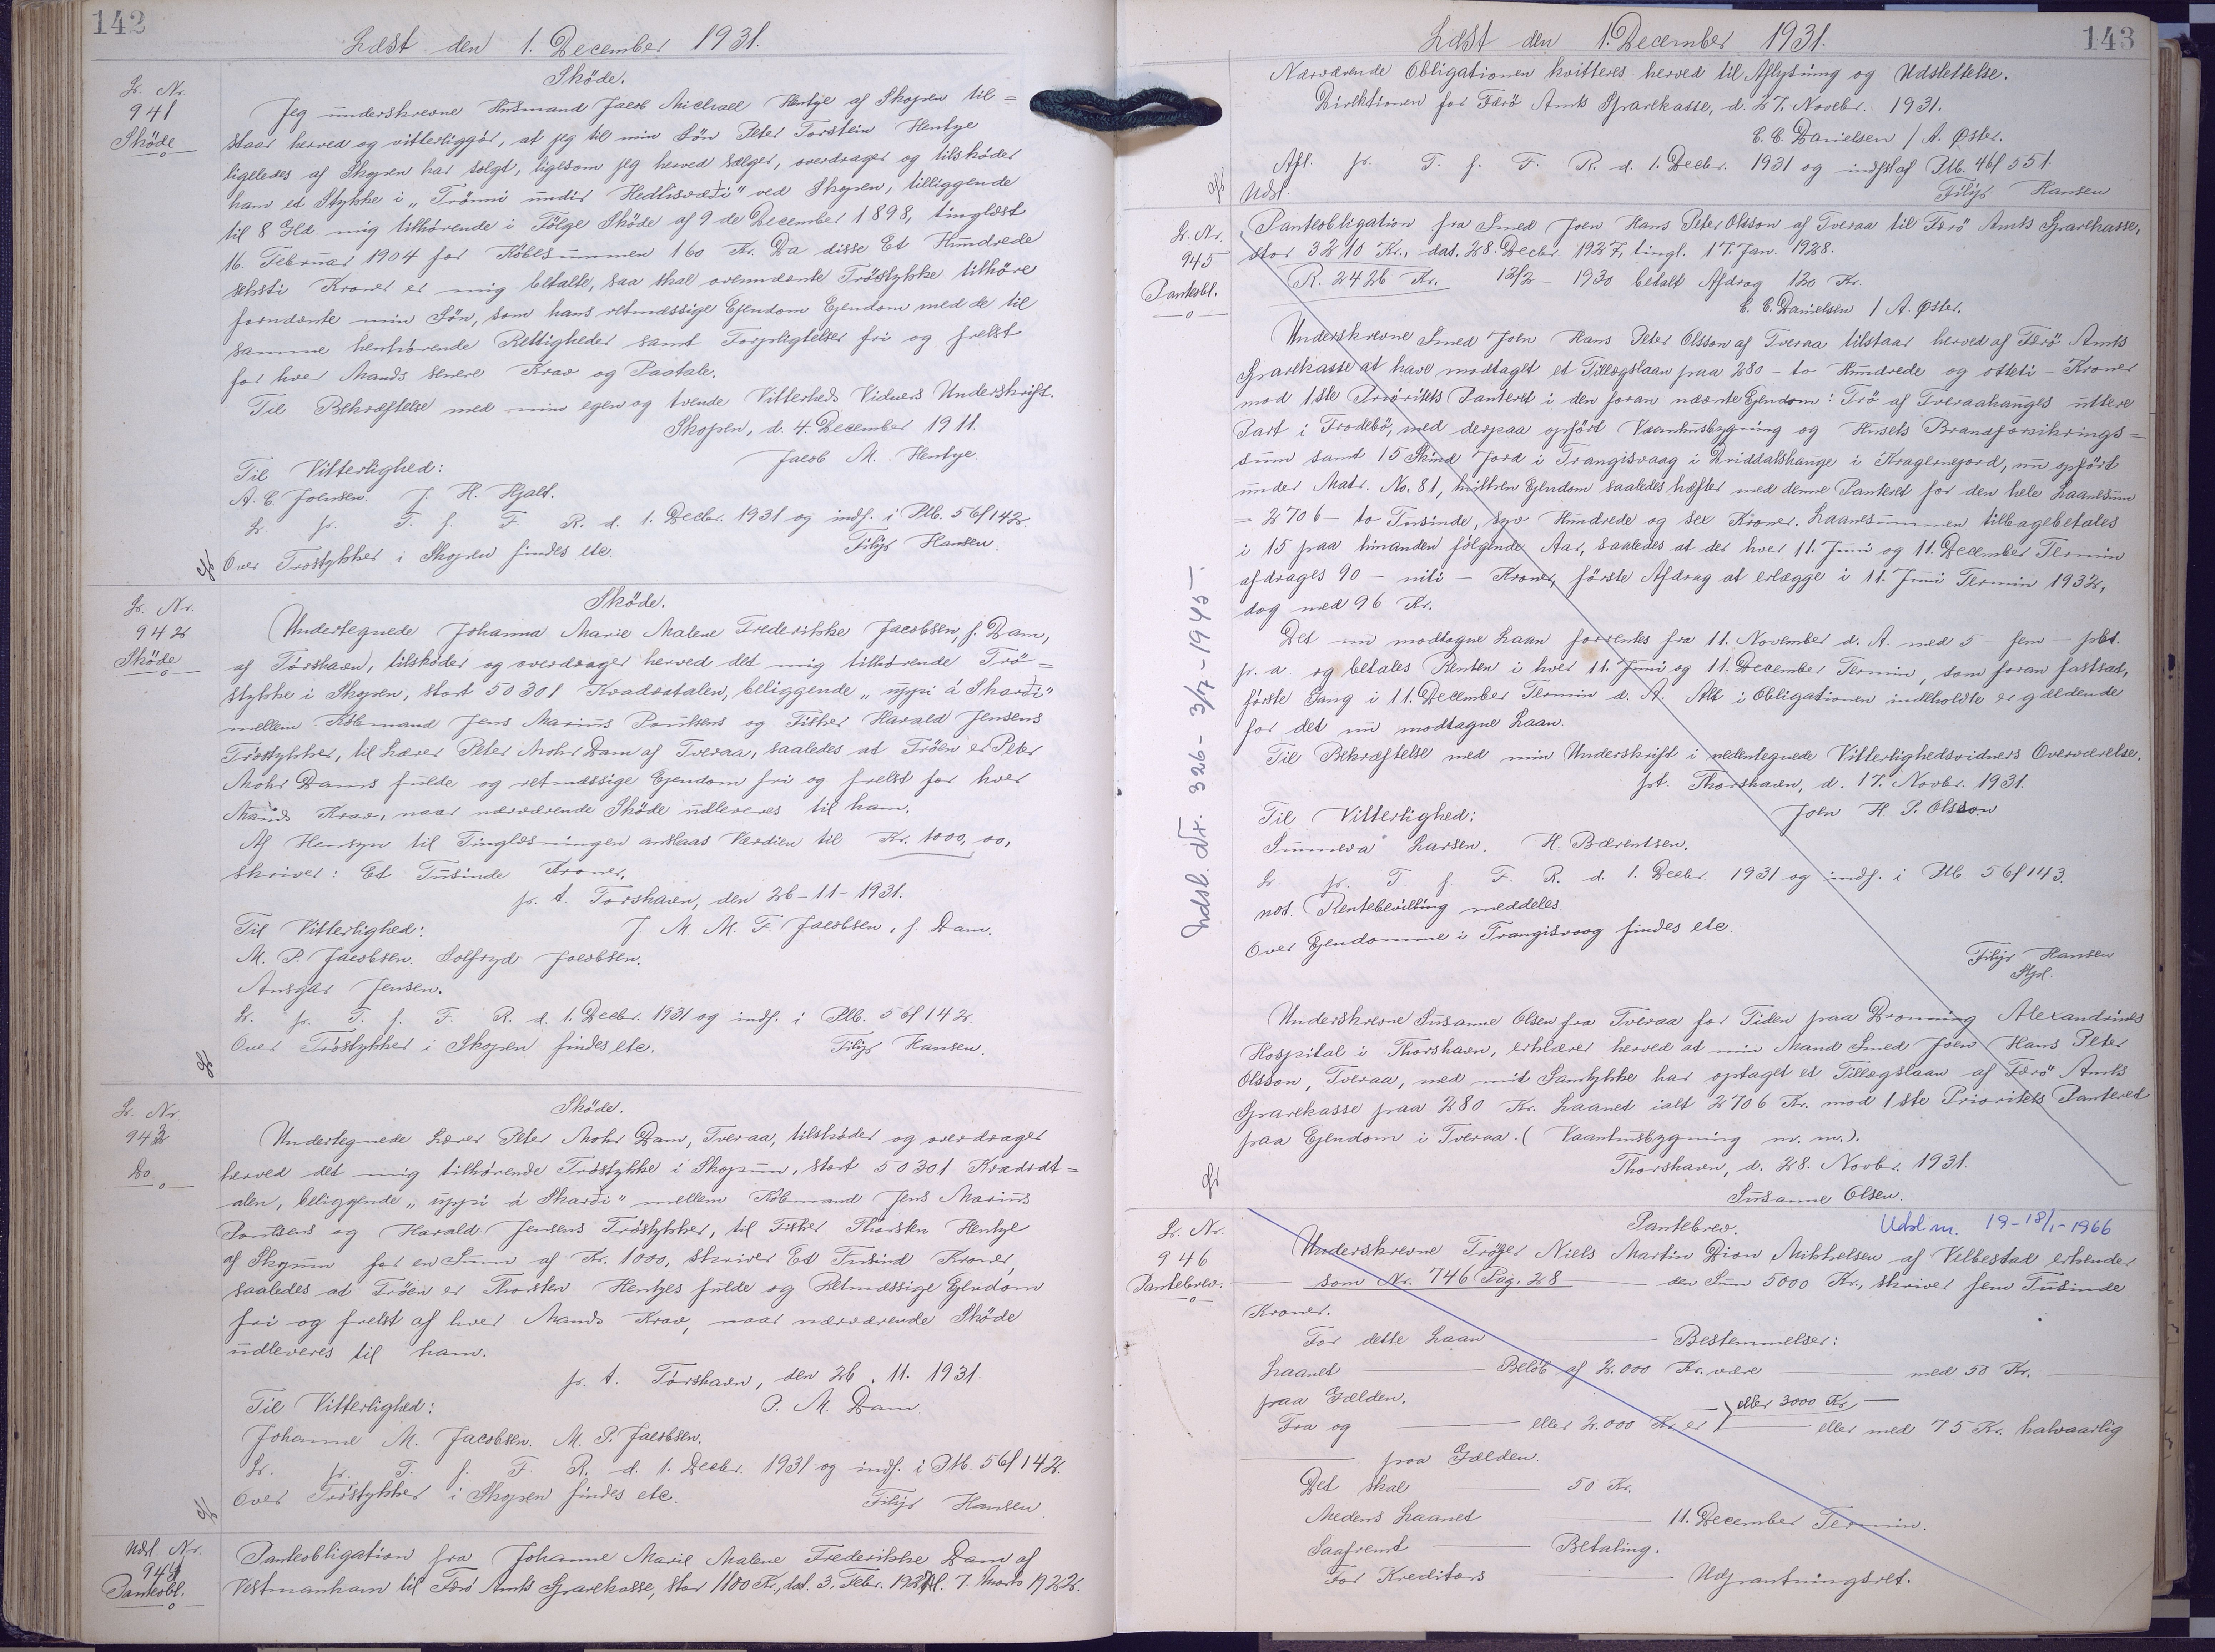 142
Læst den 1. December 1931.
L. Nr.
941
Skøde
Skøde.
Jeg underskrevne Husmand Jacob Michael Hentze af Skopen til=
staar herved og vitterliggör, at jeg til min Sön Peter Torstein Hentze
ligeledes af Skopen har solgt, ligesom jeg herved sælger, overdrager og tilsköder
ham et Stykke i „Trönni undir Hedlisvædi" ved Skopen, tilliggende
til 8 Gld. mig tilhørende i Følge Sköde af 9 de December 1898, tinglæst
16. Februar 1904 for Købesummen 160 Kr. Da disse Et Hundrede
seksti Kroner er mig betalte, saa skal ovennævnte Tröstykke tilhöre
fornævnte min Sön, som hans retmæssige Ejendom Ejendom med de til
samme henhørende Rettigheder samt Forpligtelser fri og frelst
for hver Mands senere Krav og Paatale.
Til Bekræftelse med min egen og tvende Vitterheds Vidners Underskrift.
Skopen, d. 4. December 1911.
Jacob M. Hentze.
Til Vitterlighed:
A. C. Joensen. J. H. Hjalt.
L. pr. T. f. F. R. d. 1. Decbr. 1931 og indf. i Ptb. 56f142.
Over Trøstykker i Skopen findes etc. Filip Hansen.
L. Nr.
942
Skøde
Skøde.
Undertegnede Johanna Marie Malene Frederikke Jacobsen, f. Dam,
af Tórshavn, tilskøder og overdrager herved det mig tilhørende Trö=
stykke i Skopen, stort 50301 Kvadratalen, beliggende „uppi á Skarði"
mellem Købmand Jens Marius Poulsens og Fisker Harald Jensens
Tröstykker, til Lærer Peter Mohr Dam af Tveraa, saaledes at Tröen er Peter
Mohr Dams fulde og retmæssige Ejendom fri og frelst for hver
Mands Krav, naar nærværende Skøde udleveres til ham.
Af Hensyn til Tinglæsningen anslaas Værdien til Kr. 1000,00,
skriver: Et Tusinde Kroner.
p. t. Torshavn, den 26-11-1931.
Til Vitterlighed: J. M. M. F. Jacobsen, f. Dam.
M. P. Jacobsen. Solfryd Jacobsen.
Ansgar Jensen.
L. pr. T. f. F. R. d. 1. Decbr. 1931 og indf. i Ptb. 56f142.
Over Tröstykker i Skopen findes etc. Filip Hansen.
L. Nr.
943
Do.
Skøde.
Undertegnede Lærer Peter Mohr Dam, Tveraa, tilskøder og overdrager
herved det mig tilhørende Trøstykke i Skopun, stort 50301 Kvadrat=
alen, beliggende „uppi á Skarði" mellem Købmand Jens Marius
Poulsens og Harald Jensens Trøstykker, til Fisker Thorsten Hentze
af Skopun for en Sum af Kr. 1000, skriver Et Tusind Kroner,
saaledes at Tröen er Thorsten Hentzes fulde og Retmæssige Ejendom
fri og frelst af hver Mands Krav, naar nærværende Skøde
udleveres til ham.
p. t. Tórshavn, den 26. 11. 1931.
Til Vitterlighed: P. M. Dam.
Johanne M. Jacobsen. M. P. Jacobsen.
L. pr. T. f. F. R. d. 1. Decbr. 1931 og indf. i Ptb. 56f142.
Over Tröstykker i Skopen findes etc. Filip Hansen.
Udsl. Nr.
944
Panteobl.
Panteobligation fra Johanne Marie Malene Frederikke Dam af
Vestmanhavn til Færö Amts Sparekasse, stor 1180 Kr., dat. 3. Febr. 1922, tl. 7. Marts 1922.
143
Læst den 1. December 1931.
Nærværende Obligationen kvitteres herved til Aflysning og Udslettelse.
Direktionen for Færö Amts Sparekasse, d. 27. Novebr. 1931.
C. C. Danielsen / A. Øster.
Afl. pr. T. f. F. R. d. 1. Decbr. 1931 og indf. af Ptb. 46f 551.
Udsl. Filip Hansen
L. Nr.
945
Panteobl.
Panteobligation fra Smed Joen Hans Peter Olsson af Tveraa til Færö Amts Sparekasse,
stor 3210 Kr., dat. 28. Decbr. 1927, tingl. 17. Jan. 1928.
R. 2426 Kr. 12/2 - 1930 betalt Afdrag 120 Kr.
C. C. Danielsen / A. Øster.
Underskrevne Smed Joen Hans Peter Olsson af Tveraa tilstaar herved af Færö Amts
Sparekasse at have modtaget et Tillægslaan paa 280 - to Hundrede og otteti - Kroner
mod 1ste Prioritets Panteret i den foran nævnte Ejendom: Trö af Tveraahauges uttere
Part i Trodebö, med derpaa opført Vaanhusbygning og Husets Brandforsikrings=
sum samt 15 Skind Jord i Trangisvaag i Driddalshauge i Kragernejord, nu opført
under Matr. No. 81, hvilken Ejendom saaledes hæfter med denne Panteret for den hele Laanesum
= 2706 - to Tusinde, syv Hundrede og sex Kroner. Laanesummen tilbagebetales
i 15 paa hinanden følgende Aar, saaledes at der hver 11. Juni og 11. December Termin
afdrages 90 - niti - Kroner, første Afdrag at erlægge i 11. Juni Termin 1932,
dog med 96 Kr.
Det nu modtagne Laan forrentes fra 11. November d. A. med 5 - fem - pct.
pr. a. og betales Renten i hver 11. Juni og 11. December Termin, som foran fastsat,
første Gang i 11. December Termin d. A. Alt i Obligationen indeholdte er gældende
for det nu modtagne Laan.
Til Bekræftelse med min Underskrift i nedentegnede Vitterlighedsvidners Overværelse.
pt. Thorshavn, d. 17. Novbr. 1931.
Til Vitterlighed: Joen H. P. Olsson
Summeva Larsen. H. Bærentsen.
L. pr. T. f. F. R. d. 1. Decbr. 1931 og indf. i Ptb. 56f143.
not. Rentebevilling meddeles.
Over Ejendomme i Trangisvaag findes etc.
Filip Hansen
Stpl.
Udsl. Nr. 326 - 3/7 - 1945 -.
Underskrevne Susanne Olsen fra Tveraa for Tiden paa Dronning Alexandrines
Hospital i Thorshavn, erklærer herved at min Mand Smed Joen Hans Peter
Olsson, Tveraa, med mit Samtykke har optaget et Tillægslaan af Færö Amts
Sparekasse paa 280 Kr. Laanet ialt 2706 Kr. mod 1ste Prioritets Panteret
paa Ejendom i Tveraa. (Vaanhusbygning m. m.).
Thorshavn, d. 28. Novbr. 1931.
Susanne Olsen.
L. Nr.
946
Pantebrev.
Pantebrev. Udsl. m. 19-18/1-1966
Underskrevne Niels Martin Dion Mikkelsen af Velbestad erkender
som Nr. 746 Pag. 28 den Sum 5000 Kr., skriver fem Tusinde
Kroner.
For dette Laan Bestemmelser:
Laanet Beløb af 2.000 Kr. være med 50 Kr.
paa Gælden.
eller 3000 Kr.
Fra og eller 2.000 Kr. er eller med 75 Kr. halvaarlig
paa Gælden.
Det skal 50 Kr.
Medens Laanet 11. December Termin.
Saafremt Betaling.
For Kreditors Udpantningsret.